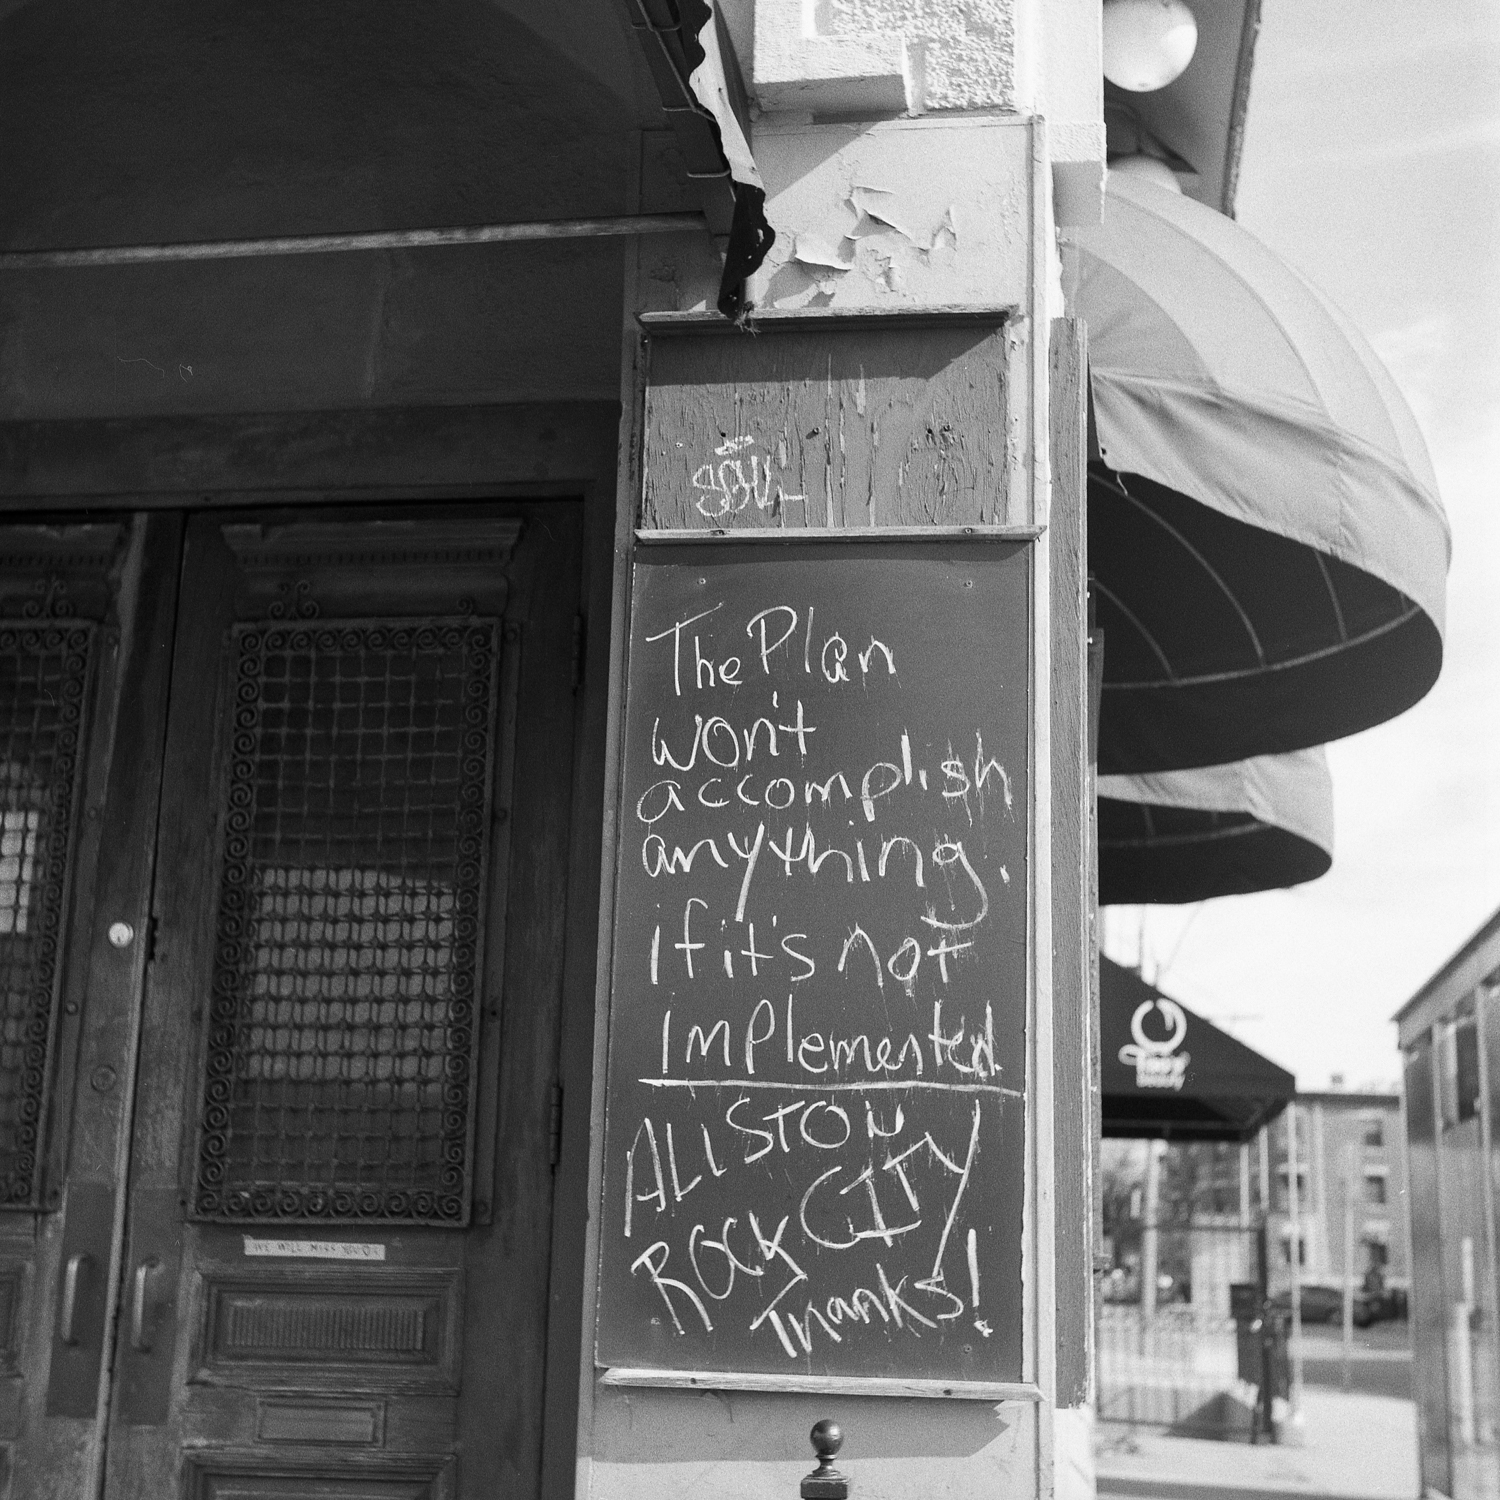 The Plan
won't
accomplish
anything.
if it's not
Implemented
ALLSTON
ROCK CITY
Thanks!
WE WILL MISS YOU